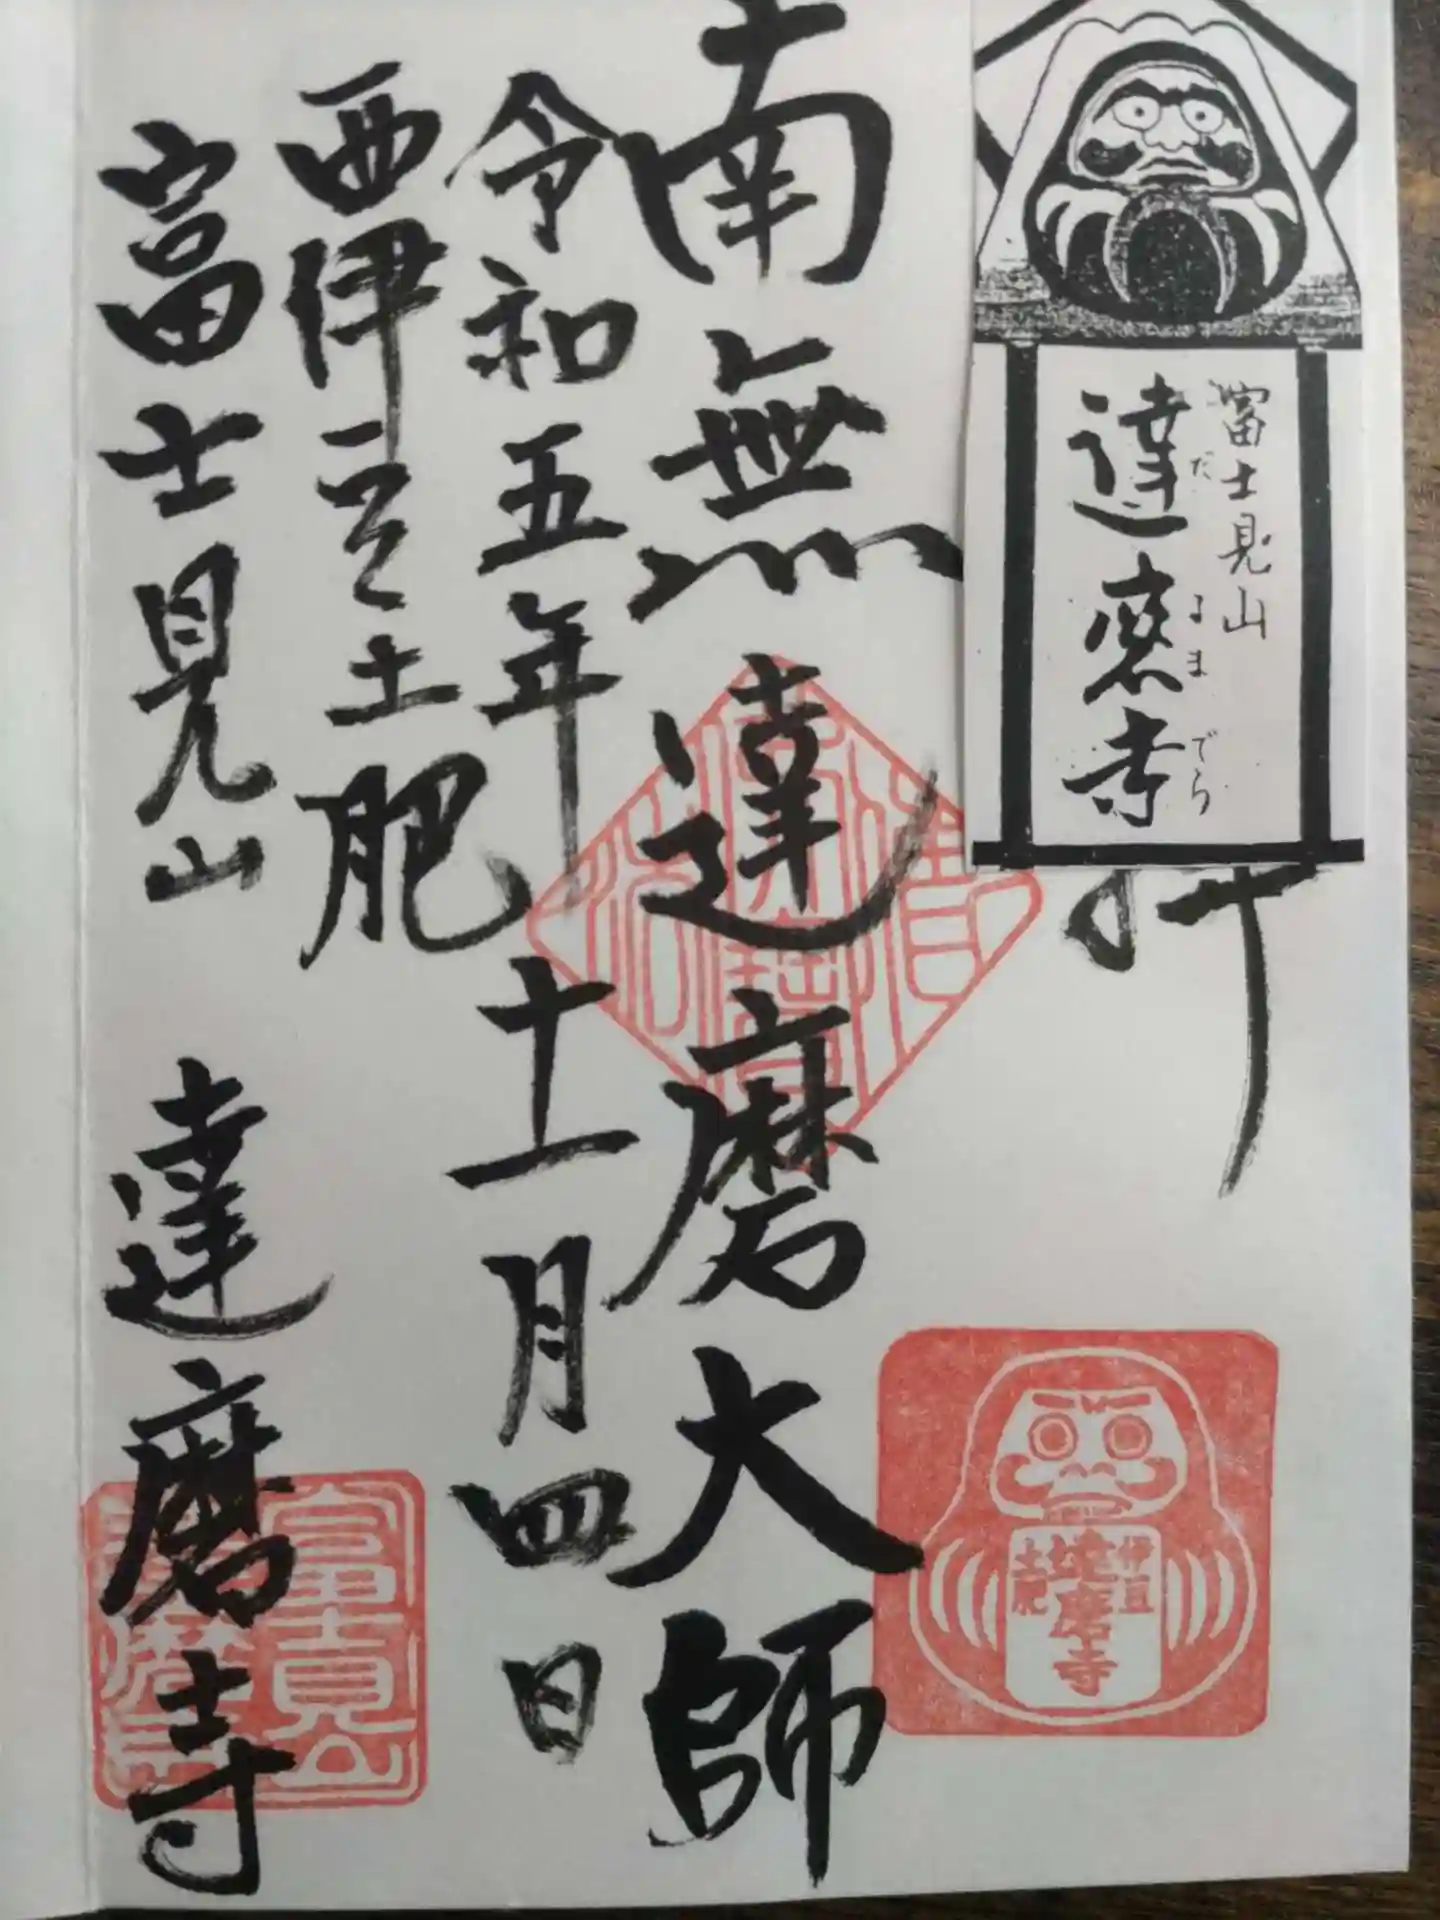 富士見山
達磨寺
だ
るま
でら
拝
南無達磨大師
令和五年十一月四日
西伊豆土肥
富士見山 達磨寺
伊豆
達磨寺
土肥